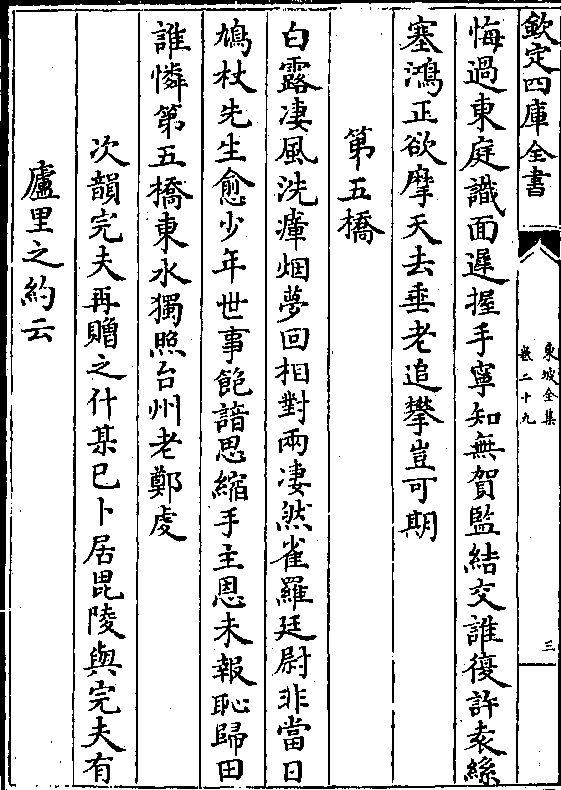 欽定四庫全書
東坡全集
卷二十九
三
悔過東庭識面遲握手寧知無賀監結交誰復許袁絲
塞鴻正欲摩天去垂老追攀豈可期
第五橋
白露凄風洗瘴烟夢回相對兩凄然雀羅廷尉非當日
鳩杖先生愈少年世事飽諳思縮手主恩未報恥歸田
誰憐第五橋東水獨照台州老鄭虔
次韻完夫再贈之什某已卜居毘陵與完夫有
廬里之約云